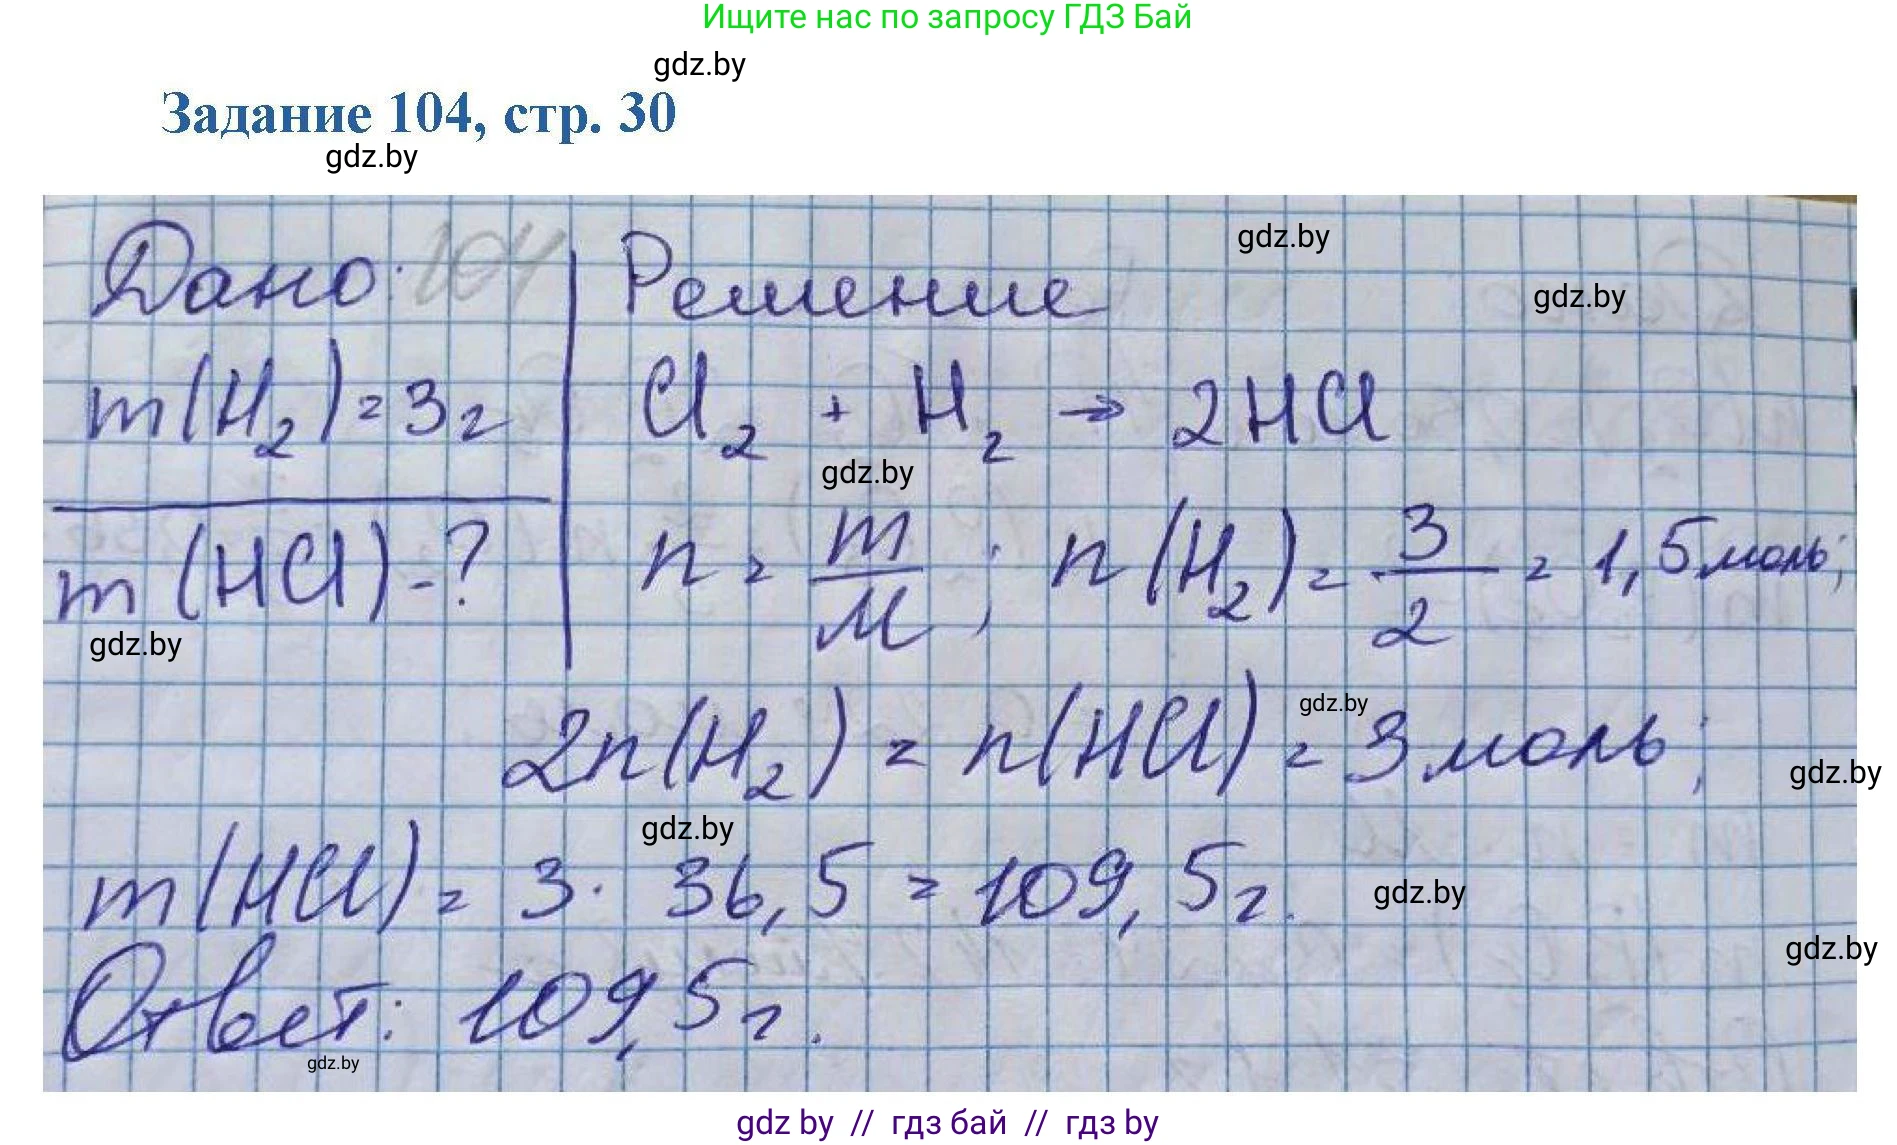 Ищите нас по запросу ГДЗ Бай
gdz.by
Задание 104, стр. 30
gdz.by
Дано: 104 Решение
gdz.by
gdz.by
m(H₂)=3г Cl₂ + H₂ → 2HCl
gdz.by
m(HCl)-? n = m/M ; n(H₂) = 3/2 = 1,5 моль;
gdz.by
2n(H₂) = n(HCl) = 3 моль;
gdz.by
gdz.by
gdz.by
m(HCl) = 3 · 36,5 = 109,5г.
gdz.by
gdz.by
Ответ: 109,5г.
gdz.by
gdz by // гдз бай // гдз by